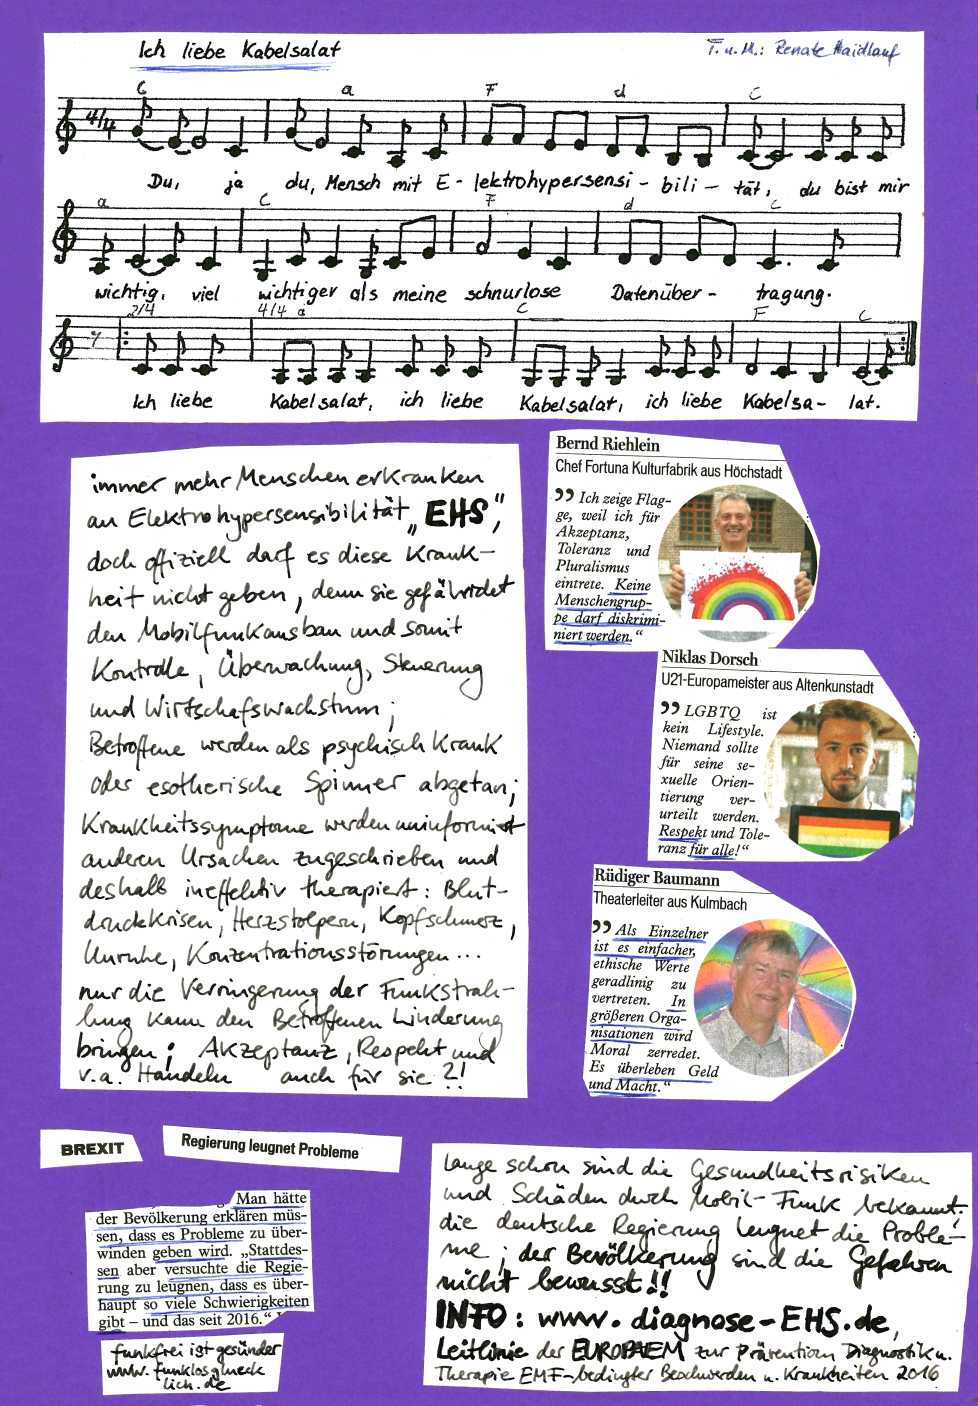 Ich liebe Kabelsalat
T. u. M.: Renate Haidlauf
C a F d C
4/4
Du, ja du, Mensch mit E-lektrohypersensi-bili-tät, du bist mir
a C F d C
wichtig, viel wichtiger als meine schnurlose Datenüber-tragung.
2/4 4/4 a C F C
Ich liebe Kabelsalat, ich liebe Kabelsalat, ich liebe Kabelsa-lat.
immer mehr Menschen erkranken
an Elektrohypersensibilität „EHS“,
doch offiziell darf es diese Krank-
heit nicht geben, denn sie gefährdet
den Mobilfunkausbau und somit
Kontrolle, Überwachung, Steuerung
und Wirtschafswachstum;
Betroffene werden als psychisch krank
oder esotherische Spinner abgetan;
Krankheitssymptome werden uninformiert
anderen Ursachen zugeschrieben und
deshalb ineffektiv therapiert: Blut-
druckkrisen, Herzstolpern, Kopfschmerz,
Unruhe, Konzentrationsstörungen...
nur die Verringerung der Funkstrah-
lung kann den Betroffenen Linderung
bringen; Akzeptanz, Respekt und
v.a. Handeln auch für sie ?!
Bernd Riehlein
Chef Fortuna Kulturfabrik aus Höchstadt
”Ich zeige Flag-
ge, weil ich für
Akzeptanz,
Toleranz und
Pluralismus
eintrete. Keine
Menschengrup-
pe darf diskrimi-
niert werden.“
Niklas Dorsch
U21-Europameister aus Altenkunstadt
”LGBTQ ist
kein Lifestyle.
Niemand sollte
für seine se-
xuelle Orien-
tierung ver-
urteilt werden.
Respekt und Tole-
ranz für alle!“
Rüdiger Baumann
Theaterleiter aus Kulmbach
”Als Einzelner
ist es einfacher,
ethische Werte
geradlinig zu
vertreten. In
größeren Orga-
nisationen wird
Moral zerredet.
Es überleben Geld
und Macht.“
BREXIT
Regierung leugnet Probleme
Man hätte
der Bevölkerung erklären müs-
sen, dass es Probleme zu über-
winden geben wird. „Stattdes-
sen aber versuchte die Regie-
rung zu leugnen, dass es über-
haupt so viele Schwierigkeiten
gibt – und das seit 2016.“
funkfrei ist gesünder
www.funklosglueck
lich.de
lange schon sind die Gesundheitsrisiken
und Schäden durch Mobil-Funk bekannt!
die deutsche Regierung leugnet die Proble-
me; der Bevölkerung sind die Gefahren
nicht bewusst!!
INFO: www.diagnose-EHS.de,
Leitlinie der EUROPAEM zur Prävention Diagnostik u.
Therapie EMF-bedingter Beschwerden u. Krankheiten 2016